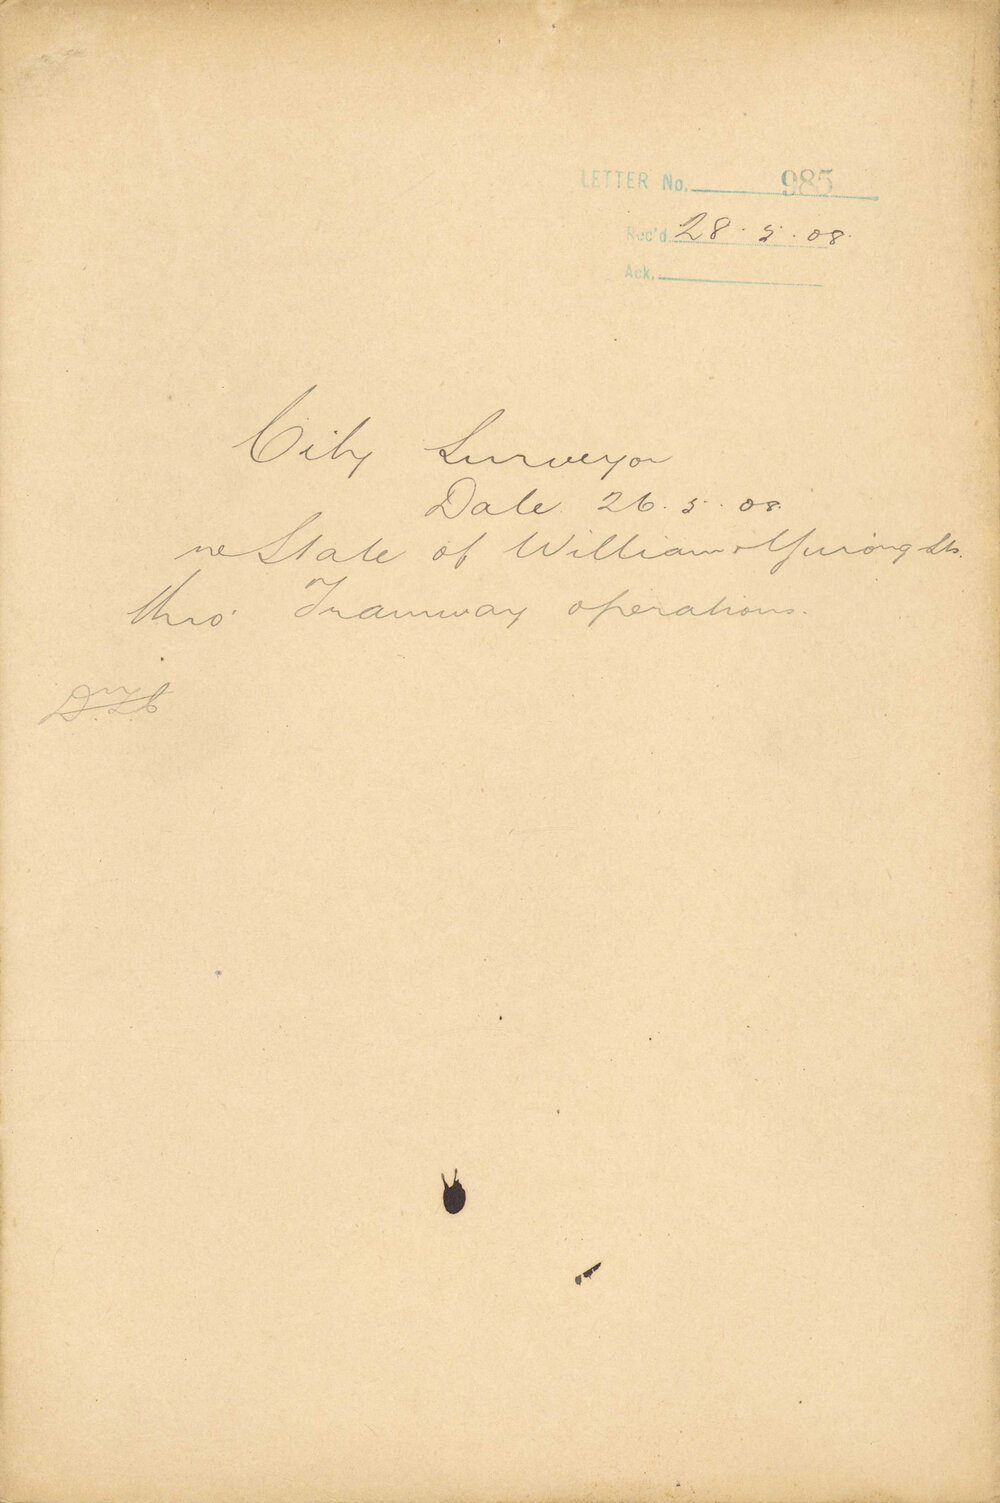 LETTER No. 985
Rec'd 28.5.08.
Ack.
City Surveyor
Date 26.5.08.
re State of William & Yurong Sts.
thro' Tramway operations.